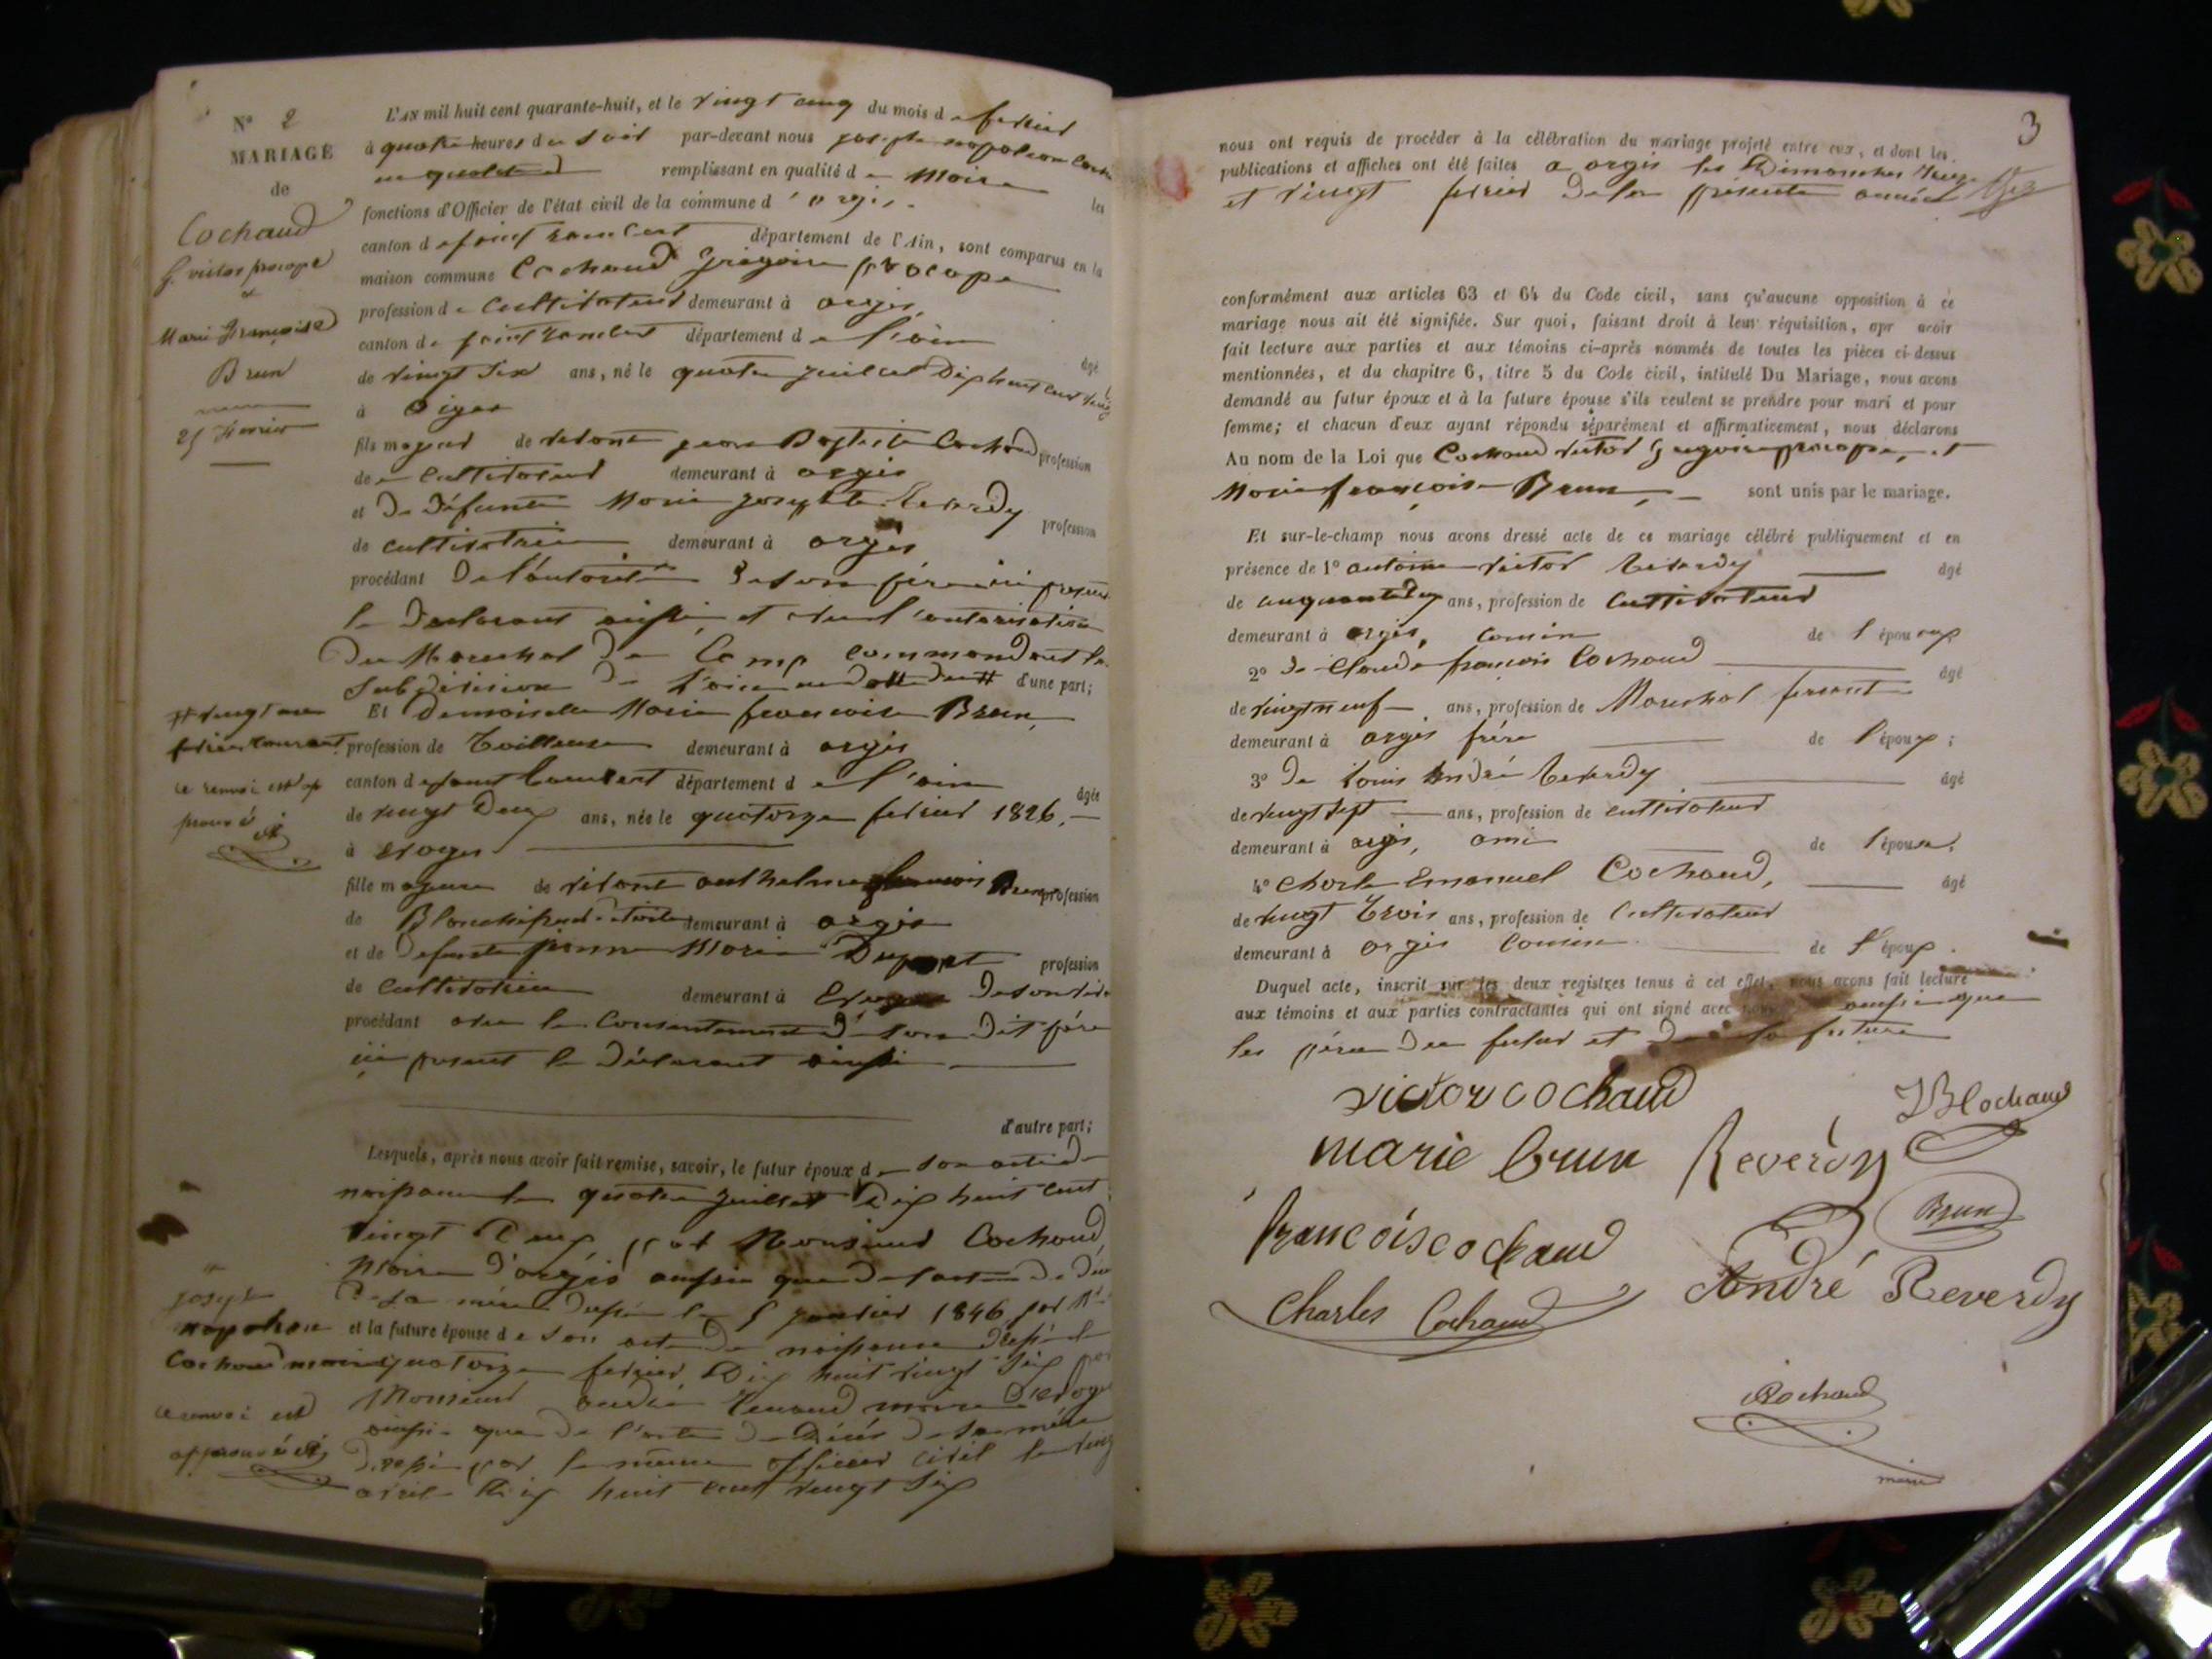 N° 2
MARIAGE
de
Cochaud
G. victor procope
et
Marie Françoise
Brun
25 février
L'AN mil huit cent quarante-huit, et le vingt cinq du mois de fevrier
à quatre heures du soir par-devant nous joseph napoleon
remplissant en qualité de Maire les
fonctions d'Officier de l'état civil de la commune d'orgis,
canton de saint rambert département de l'Ain, sont comparus en la
maison commune Cochaud Grégoire procope
profession de Cultivateur demeurant à orgis
canton de saint rambert département de l'ain âgé
de vingt six ans, né le quatre juillet Dix huit cent
à
fils majeur de vivant jean Baptiste Cochaud profession
de Cultivateur demeurant à orgis
et De Défunte Marie josephte Reverdy profession
de cultivatrice demeurant à orgis
procédant De l'autorité De son père ici present
le Declarant ainsi et vu l'autorisation
Du Marechal De Camp commandant la
Subdivision De l'ain d'une part;
# vingt un
fevrier courant
Et Demoiselle Marie françoise Brun,
profession de Tailleuse demeurant à orgis
ce renvoi est ap
prouvé
canton de saint rambert département de l'ain âgée
de vingt Deux ans, née le quatorze fevrier 1826,
à evoges
fille majeure de vivant anthelme françois Brun profession
de Blanchisseur de toile demeurant à orgis
et de Defunte jeanne Marie profession
de Cultivatrice demeurant à De son
procédant avec le Consentement De son Dit père
ici present le Déclarant ainsi
d'autre part;
Lesquels, après nous avoir fait remise, savoir, le futur époux de son acte de
naissance le quatre juillet Dix huit cent
vingt Deux par Monsieur Cochaud
Maire D'orgis ainsi que De l'acte De
De sa mère Dressé le 5 janvier 1846 par Mr
# joseph
napoleon
Cochaud maire
et la future épouse de son acte De naissance dressé le
quatorze fevrier Dix huit vingt Six par
Monsieur andré maire D'evoges
ce renvoi est
approuvé
ainsi que De l'acte De Décés De sa mère
Dressé par le même officier civil le
avril Dix huit cent vingt Six
3
nous ont requis de procéder à la célébration du mariage projeté entre eux, et dont les
publications et affiches ont été faites a orgis les Dimanches treize
et vingt fevrier De la presente année
conformément aux articles 63 et 64 du Code civil, sans qu'aucune opposition à ce
mariage nous ait été signifiée. Sur quoi, faisant droit à leur réquisition, apr avoir
fait lecture aux parties et aux témoins ci-après nommés de toutes les pièces ci-dessus
mentionnées, et du chapitre 6, titre 5 du Code civil, intitulé Du Mariage, nous avons
demandé au futur époux et à la future épouse s'ils veulent se prendre pour mari et pour
femme; et chacun d'eux ayant répondu séparément et affirmativement, nous déclarons
Au nom de la Loi que Cochaud victor Gregoire procope, et
Marie françoise Brun, sont unis par le mariage.
Et sur-le-champ nous avons dressé acte de ce mariage célébré publiquement et en
présence de 1° antoine victor Reverdy âgé
de ans, profession de Cultivateur
demeurant à orgis, cousin de l'époux
2° De Claude françois Cochaud âgé
de vingt neuf ans, profession de Marechal ferrant
demeurant à orgis frère de l'époux;
3° De Louis André Reverdy âgé
de vingt sept ans, profession de cultivateur
demeurant à orgis, ami de l'épouse,
4° Charle Emanuel Cochaud, âgé
de vingt trois ans, profession de Cultivateur
demeurant à orgis cousin de l'époux.
Duquel acte, inscrit sur les deux registres tenus à cet effet, nous avons fait lecture
aux témoins et aux parties contractantes qui ont signé avec nous ainsi que
les pères Du futur et De la future
victor cochaud
JB Cochaud
marie brun
Reverdy
Brun
francois cochaud
André Reverdy
Charles Cochaud
Cochaud
maire